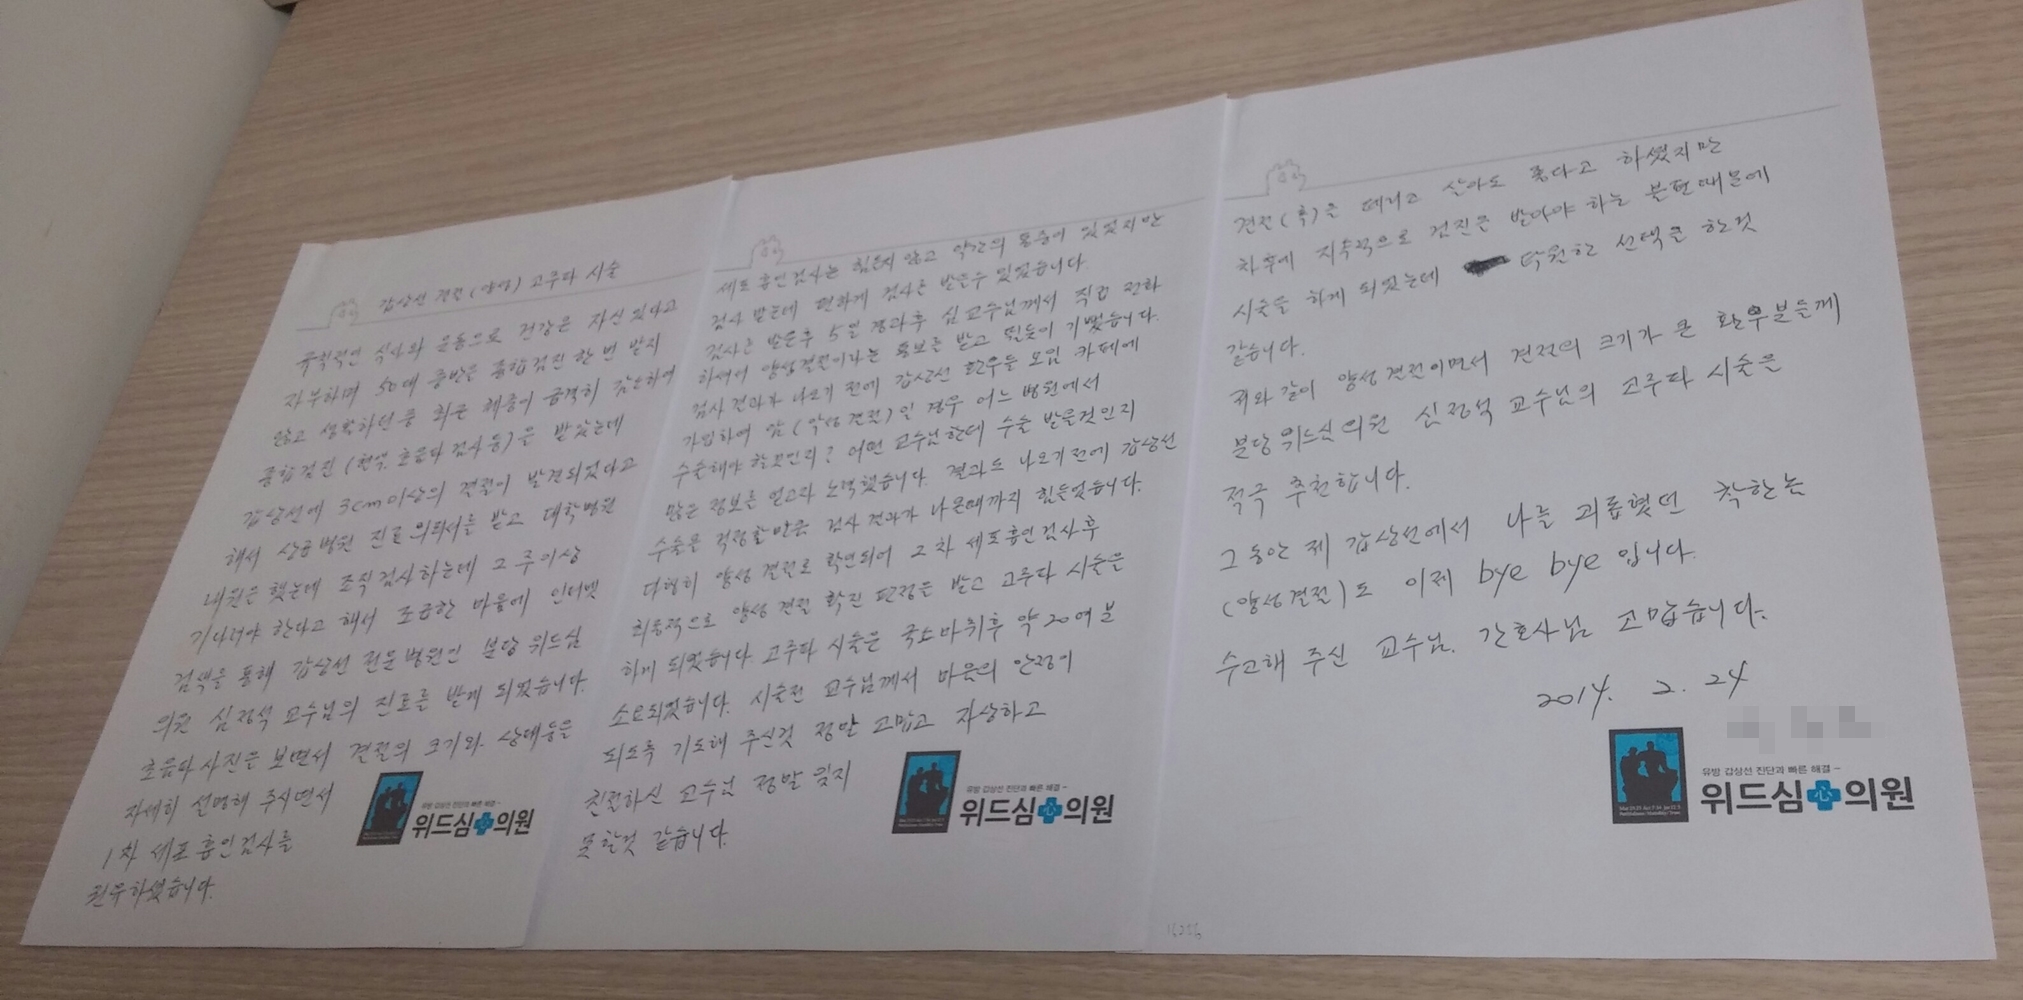 갑상선 결절(양성) 고주파 시술
규칙적인 식사와 운동으로 건강은 자신있다고
자부하며 50대 중반을 종합검진 한번 받지
않고 생활하던 중 최근 체중이 급격히 감소하여
종합검진(혈액, 초음파 검사등)을 받았는데
갑상선에 3cm이상의 결절이 발견되었다고
해서 상급병원 진료의뢰서를 받고 대학병원
내원을 했는데 조직검사하는데 2주이상
기다려야 한다고 해서 조급한 마음에 인터넷
검색을 통해 갑상선 전문병원인 분당 위드심
의원 심정석 교수님의 진료를 받게 되었습니다.
초음파사진을 보면서 결절의 크기와 상태등을
자세히 설명해 주시면서
1차 세포흡인검사를
권유하셨습니다.
유방 갑상선 진단과 빠른 해결 -
위드심의원
세포흡인검사는 힘들지 않고 약간의 통증이 있었지만
검사 받는데 편하게 검사를 받을수 있었습니다.
검사를 받은후 5일 경과후 심교수님께서 직접 전화
하셔서 양성결절이라는 통보를 받고 뛸듯이 기뻤습니다.
검사결과가 나오기 전에 갑상선 환우들 모임 카페에
가입하여 암(악성결절)일 경우 어느 병원에서
수술해야 할것인지? 어떤 교수님한테 수술 받을것인지
많은 정보를 얻고자 노력했습니다. 결과도 나오기전에 갑상선
수술을 걱정할만큼 검사결과가 나올때까지 힘들었습니다.
다행히 양성결절로 확인되어 2차 세포흡인검사후
최종적으로 양성결절 확진 판정을 받고 고주파 시술을
하게 되었습니다. 고주파 시술은 국소마취후 약 20여분
소요되었습니다. 시술전 교수님께서 마음의 안정이
되도록 기도해 주신것 정말 고맙고 자상하고
친절하신 교수님 정말 잊지
못할것 같습니다.
유방 갑상선 진단과 빠른 해결 -
위드심의원
결절(혹)을 데리고 살아도 좋다고 하셨지만
차후에 지속적으로 검진을 받아야 하는 불편때문에
시술을 하게 되었는데 탁월한 선택을 한것
같습니다.
저와 같이 양성결절이면서 결절의 크기가 큰 환우분들께
분당위드심의원 심정석 교수님의 고주파 시술을
적극 추천합니다.
그동안 제 갑상선에서 나를 괴롭혔던 착한놈
(양성결절)도 이제 bye bye 입니다.
수고해 주신 교수님, 간호사님 고맙습니다.
2014. 2. 24
유방 갑상선 진단과 빠른 해결 -
위드심의원